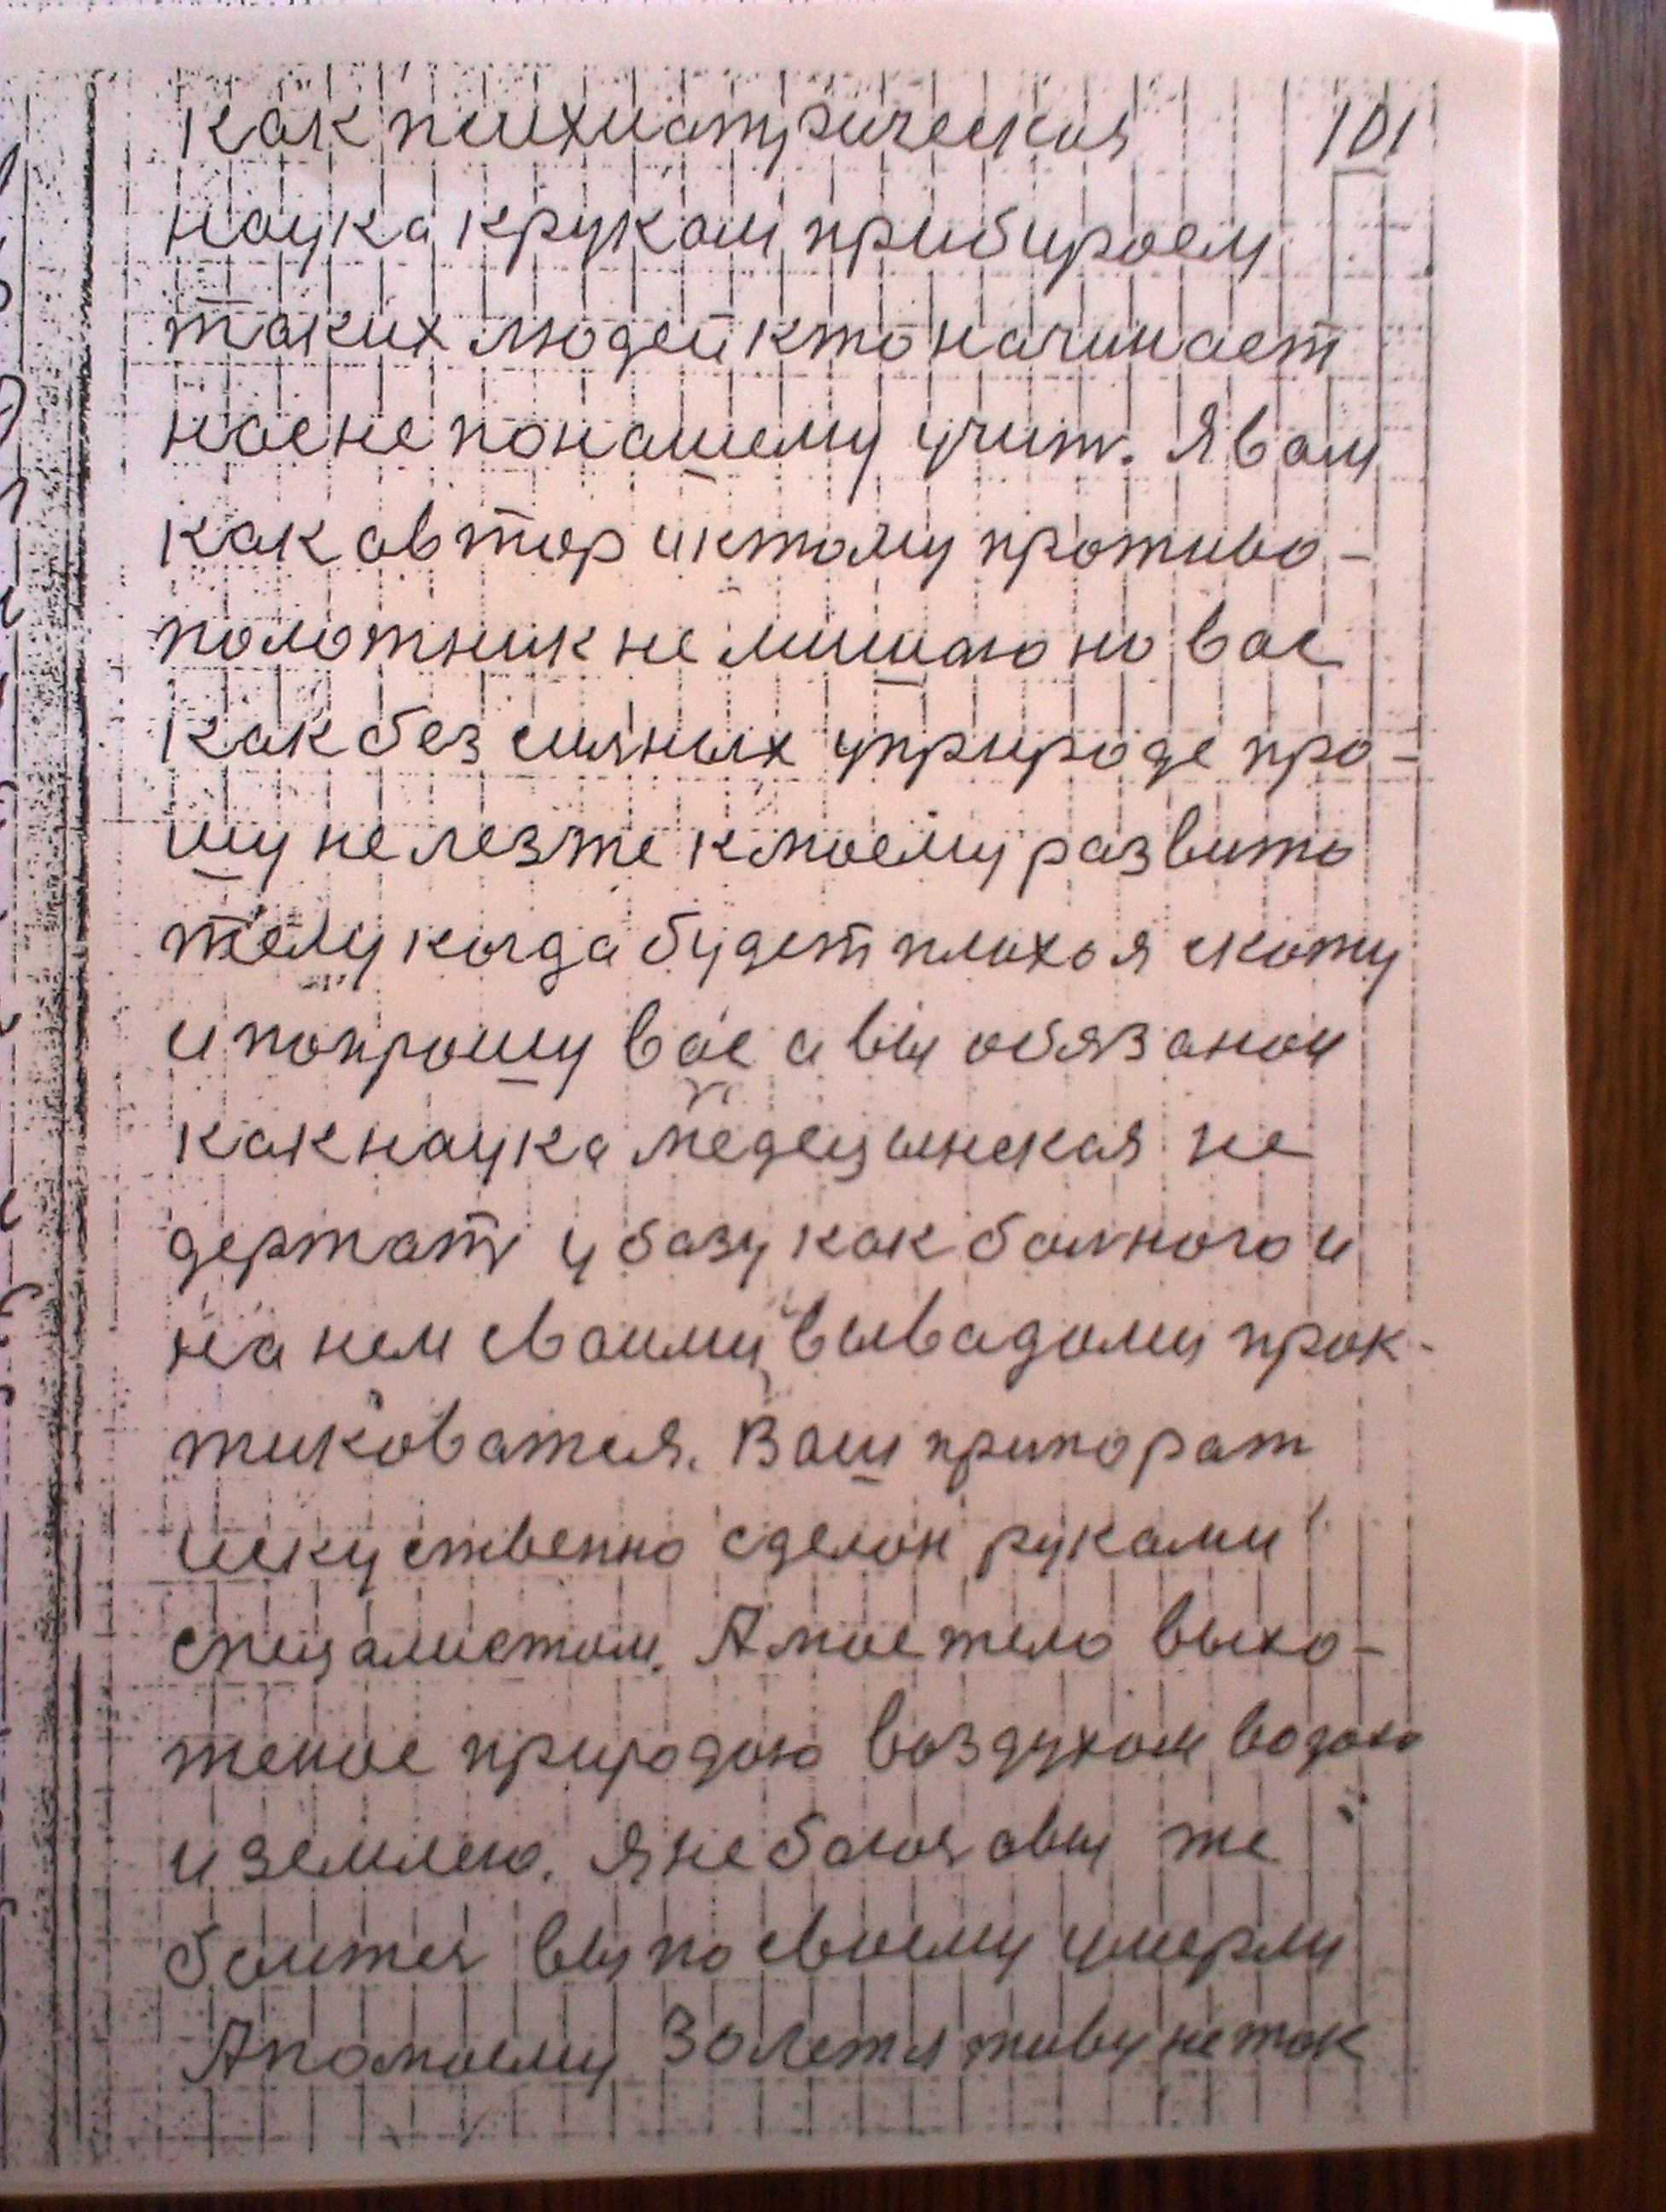 как психиатрическая 101
наука крукам прибираем
таких людей кто начинает
нас не по нашему учит. Я вам
как автор и к тому противо-
полотник не мишаю но вас
как без силных у природе про-
шу не лезте к моему развито
телу когда будет плохо я скажу
и попрошу вас а вы обязаной
как наука медецынская не
держат у базу как болного и
на нем своими вывадами прак-
тиковатся. Ваш припорат
искуственно сделан руками
спецалистом. А мое тело выхо-
женое природою воздухом водою
и землею. Я не боюя а вы же
боитеся вы по своему умерли
А по моему 30 лет я живу не так